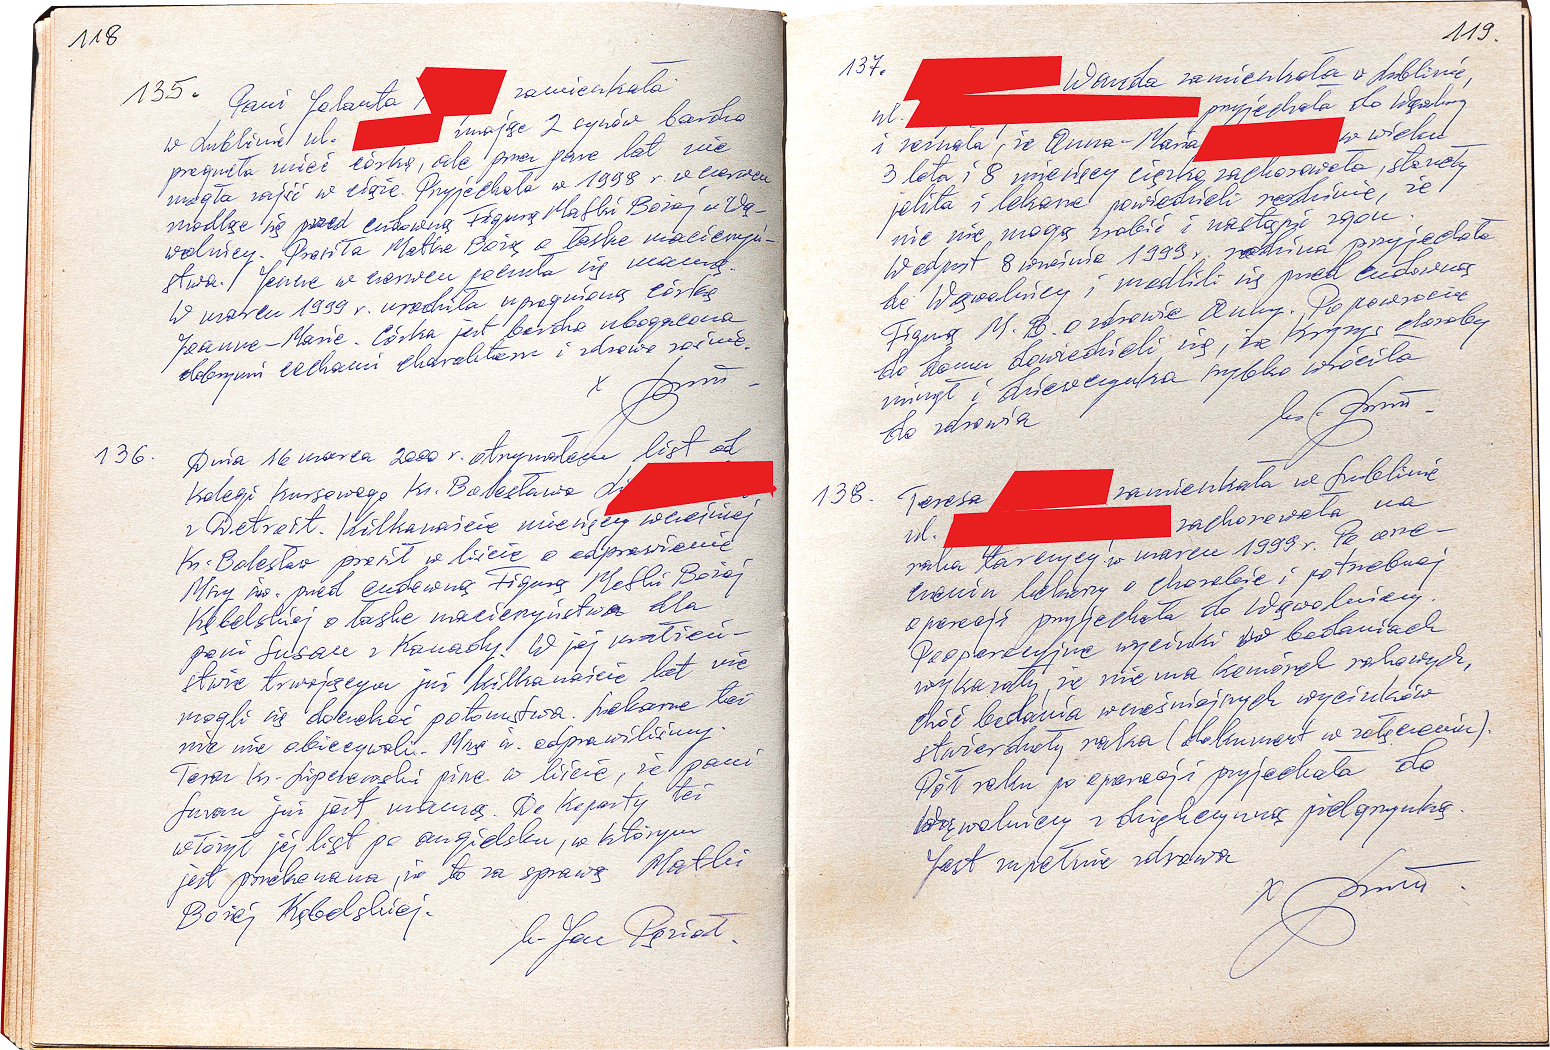 118
135. Pani Jolanta zamieszkała
w Lublinie ul. mając 2 synów bardzo
pragnęła mieć córkę, ale przez parę lat nie
mogła zajść w ciążę. Przyjechała w 1998 r w czerwcu
modląc się przed cudowną Figurą Matki Bożej w Wą-
wolnicy. Prosiła Matkę Bożą o łaskę macierzyń-
stwa. Jeszcze w czerwcu poczuła się mamą.
W marcu 1999 r. urodziła upragnioną córkę
Joannę-Marię. Córka jest bardzo ubogacona
dobrymi cechami charakteru i zdrowo rośnie.
136. Dnia 16 marca 2000 r. otrzymałem list od
kolegi kursowego Ks. Bolesława
z Detroit. Kilkanaście miesięcy wcześniej
Ks. Bolesław prosił w liście o odprawienie
Mszy św. przed cudowną Figurą Matki Bożej
Kębelskiej o łaskę macierzyństwa dla
pani Susan z Kanady. W jej małżeń-
stwie trwającym już kilkanaście lat nie
mogli się doczekać potomstwa. Lekarze też
nic nie obiecywali. Mszę św. odprawiliśmy.
Teraz Ks. Lipczewski pisze w liście, że pani
Susan już jest mamą. Do koperty też
włożył jej list po angielsku, w którym
jest przekonana, że to za sprawą Matki
Bożej Kębelskiej.
ks. Jan Pęzioł.
119.
137. Wanda zamieszkała w Lublinie,
ul. przyjechała do Wąwolnicy
i zeznała, że Anna-Maria w wieku
3 lata i 8 miesięcy ciężko zachorowała, stanęły
jelita i lekarze powiedzieli rodzinie, że
nic nie mogą zrobić i nastąpi zgon.
W odpust 8 września 1999 r. rodzina przyjechała
do Wąwolnicy i modlili się przed cudowną
Figurą M. B. o zdrowie Anny. Po powrocie
do domu dowiedzieli się, że kryzys choroby
minął i dziewczynka szybko wróciła
do zdrowia
ks.
138. Teresa zamieszkała w Lublinie
ul. zachorowała na
raka tarczycy w marcu 1999 r. Po orze-
czeniu lekarzy o chorobie i potrzebnej
operacji przyjechała do Wąwolnicy.
Pooperacyjne wycinki w badaniach
wykazały, że nie ma komórek rakowych,
choć badania wcześniejszych wycinków
stwierdzały raka (dokument w załączeniu).
Pół roku po operacji przyjechała do
Wąwolnicy z dziękczynną pielgrzymką.
Jest zupełnie zdrowa